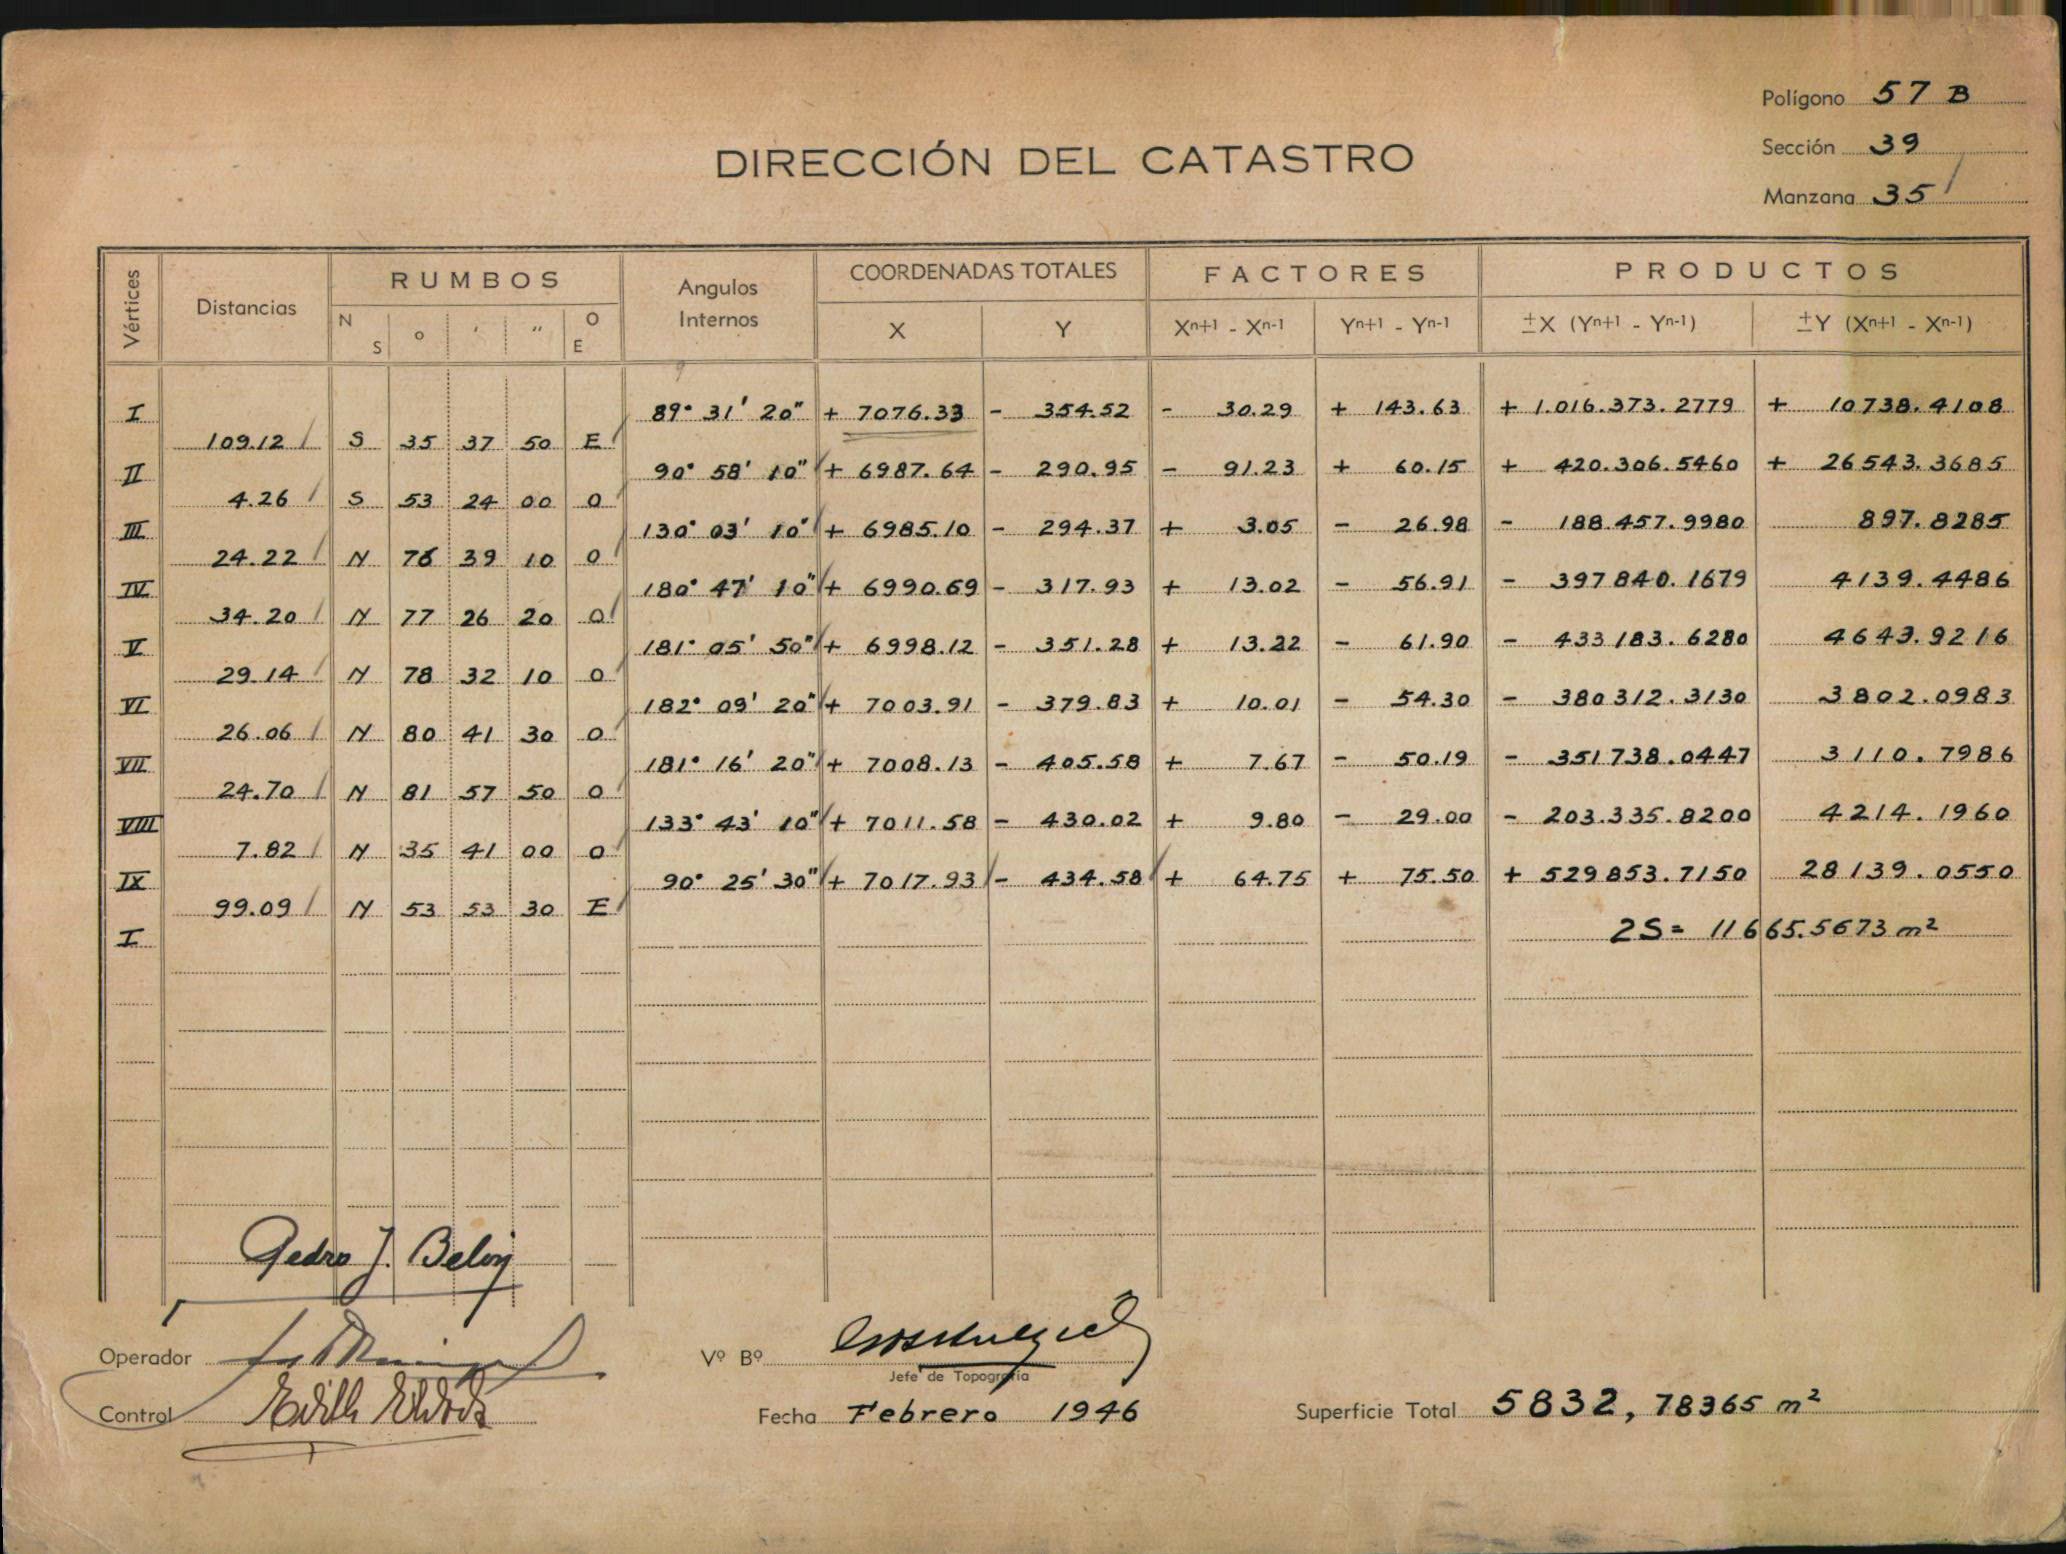 Polígono 57 B
Sección 39
Manzana 35
DIRECCIÓN DEL CATASTRO
Vértices Distancias RUMBOS Angulos Internos COORDENADAS TOTALES FACTORES PRODUCTOS
N S ° ' " O E X Y Xn+1 - Xn-1 Yn+1 - Yn-1 ±X (Yn+1 - Yn-1) ±Y (Xn+1 - Xn-1)
I 89° 31' 20" + 7076.33 - 354.52 - 30.29 + 143.63 + 1.016.373.2779 + 10738.4108
109.12 S 35 37 50 E
II 90° 58' 10" + 6987.64 - 290.95 - 91.23 + 60.15 + 420.306.5460 + 26543.3685
4.26 S 53 24 00 O
III 130° 03' 10" + 6985.10 - 294.37 + 3.05 - 26.98 - 188.457.9980 897.8285
24.22 N 76 39 10 O
IV 180° 47' 10" + 6990.69 - 317.93 + 13.02 - 56.91 - 397840.1679 4139.4486
34.20 N 77 26 20 O
V 181° 05' 50" + 6998.12 - 351.28 + 13.22 - 61.90 - 433183.6280 4643.9216
29.14 N 78 32 10 O
VI 182° 09' 20" + 7003.91 - 379.83 + 10.01 - 54.30 - 380312.3130 3802.0983
26.06 N 80 41 30 O
VII 181° 16' 20" + 7008.13 - 405.58 + 7.67 - 50.19 - 351738.0447 3110.7986
24.70 N 81 57 50 O
VIII 133° 43' 10" + 7011.58 - 430.02 + 9.80 - 29.00 - 203.335.8200 4214.1960
7.82 N 35 41 00 O
IX 90° 25' 30" + 7017.93 - 434.58 + 64.75 + 75.50 + 529853.7150 28139.0550
99.09 N 53 53 30 E
I 2S = 11665.5673 m²
Pedro J.
Operador
Vº Bº
Jefe de Topografía
Control
Fecha Febrero 1946
Superficie Total 5832,78365 m²